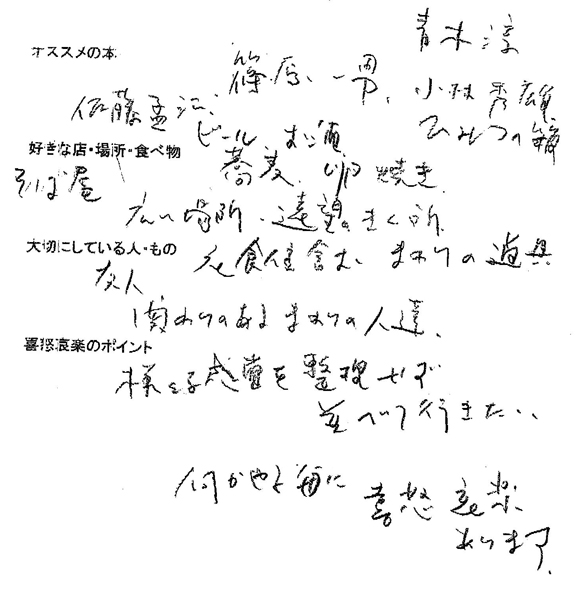 青木淳
オススメの本
篠原一男、小林秀雄
佐藤孟江、
ひみつの
ビール お酒
好きな店・場所・食べ物
蕎麦、卯焼き
そば屋
広い場所・遠望のきく所
大切にしている人・もの
衣食住含む まわりの道具
友人
関わりのあるまわりの人達、
喜怒哀楽のポイント
様々な感覚を整理せず
並べて行きたい、
何かやる毎に 喜怒哀楽
あります。